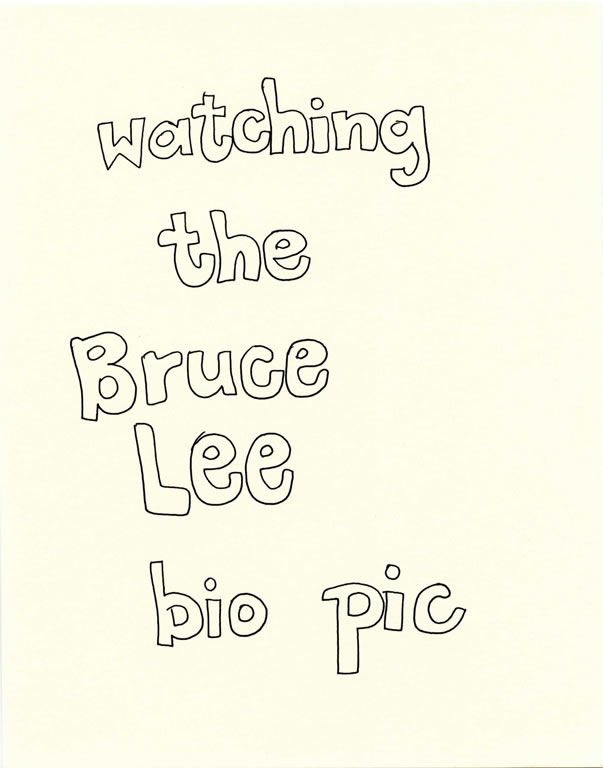 watching
the
Bruce
Lee
bio pic